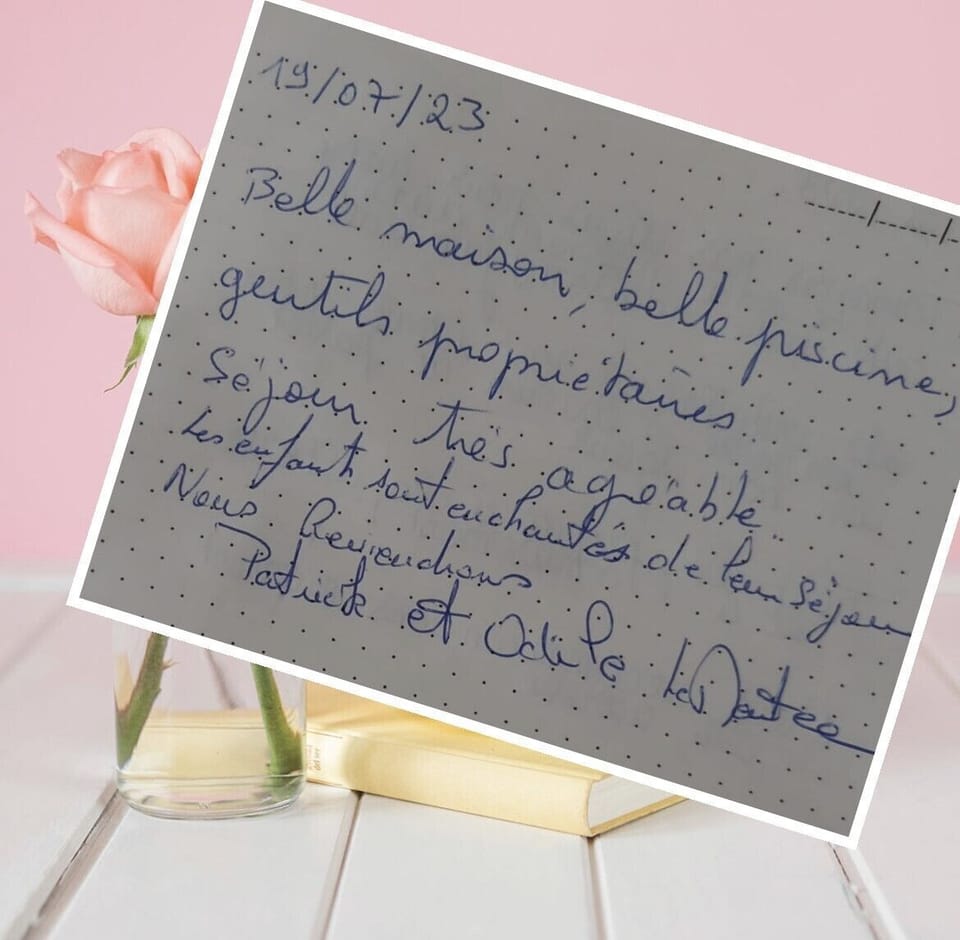 19/07/23
Belle maison, belle piscine,
gentils propriétaires
Séjour très agréable
Les enfants sont enchantés de leur séjour
Nous Reviendrons
Patrick et Odile